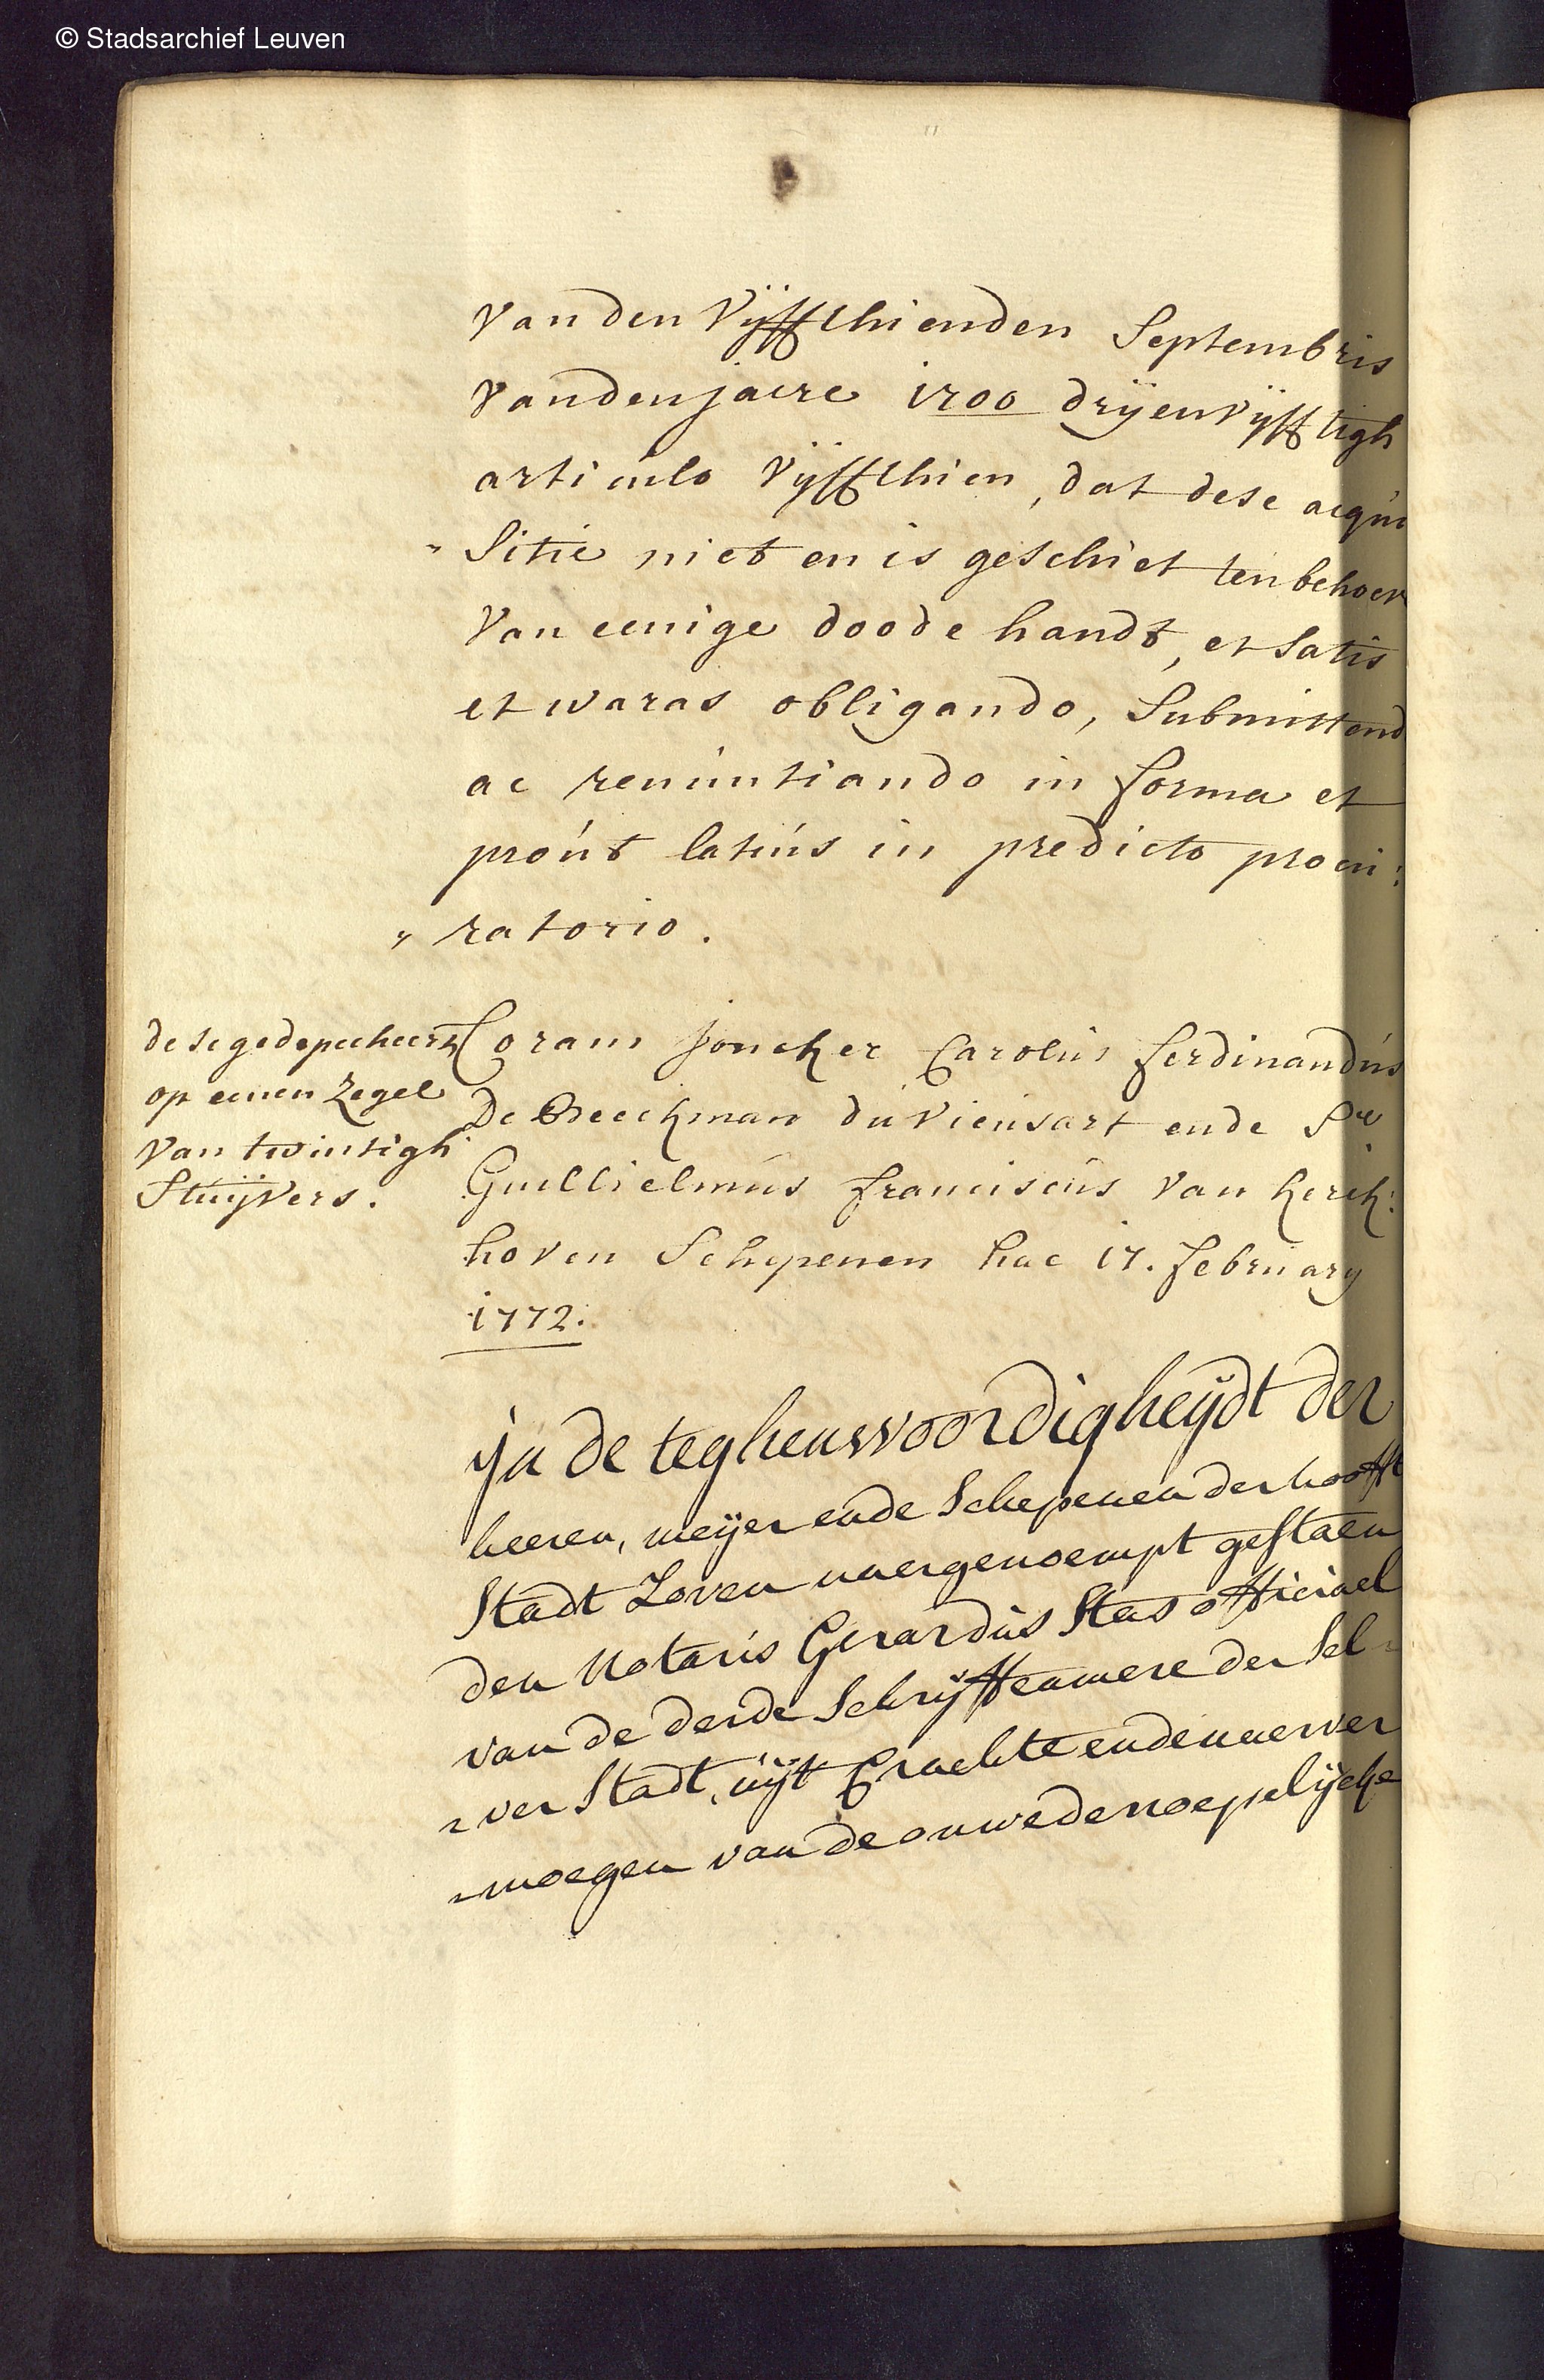 © Stadsarchief Leuven
van den vÿffthienden Septembris
vanden jaere 1700 drÿenvÿfftigh
articulo vÿffthien, dat dese acqui
„ sitie niet en is geschiet ten behoev
van eenige doode handt, et satis
et waras obligando, submittend
ac renuntiando in forma et
proút latiús in predicto procú:
„ ratorio.
dese gedepecheert
op eenen zegel
van twintigh
stuÿvers.
Coram joncker Carolús ferdinandús
De Beeckman du Vieusart ende Sr
Guillielmús franciscús van kerck:
hoven Schepenen hac 17. february
1772.
ÿn de teghenswoordigheÿdt der
heeren, meÿer ende Schepenen der hooft
Stadt Loven naergenoempt gestaen
den Notaris Gerardús Stas officiael
van de derde Schrÿffcamere der sel
„ ver Stadt, úÿt Crachte ende naerver
„ moegen van de onwederroepelÿcke